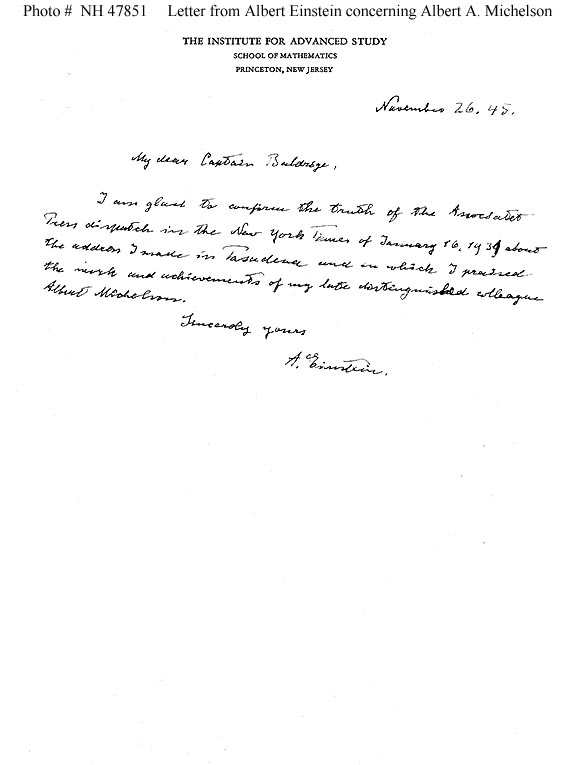 Photo # NH 47851 Letter from Albert Einstein concerning Albert A. Michelson
THE INSTITUTE FOR ADVANCED STUDY
SCHOOL OF MATHEMATICS
PRINCETON, NEW JERSEY
November 26. 45.
My dear Captain Baldridge,
I am glad to confirm the truth of the Associated
Press dispatch in the New York Times of January 16, 1931 about
the address I made in Pasadena and in which I praised
the work and achievements of my late distinguished colleague
Albert Michelson.
Sincerely yours
A. Einstein.